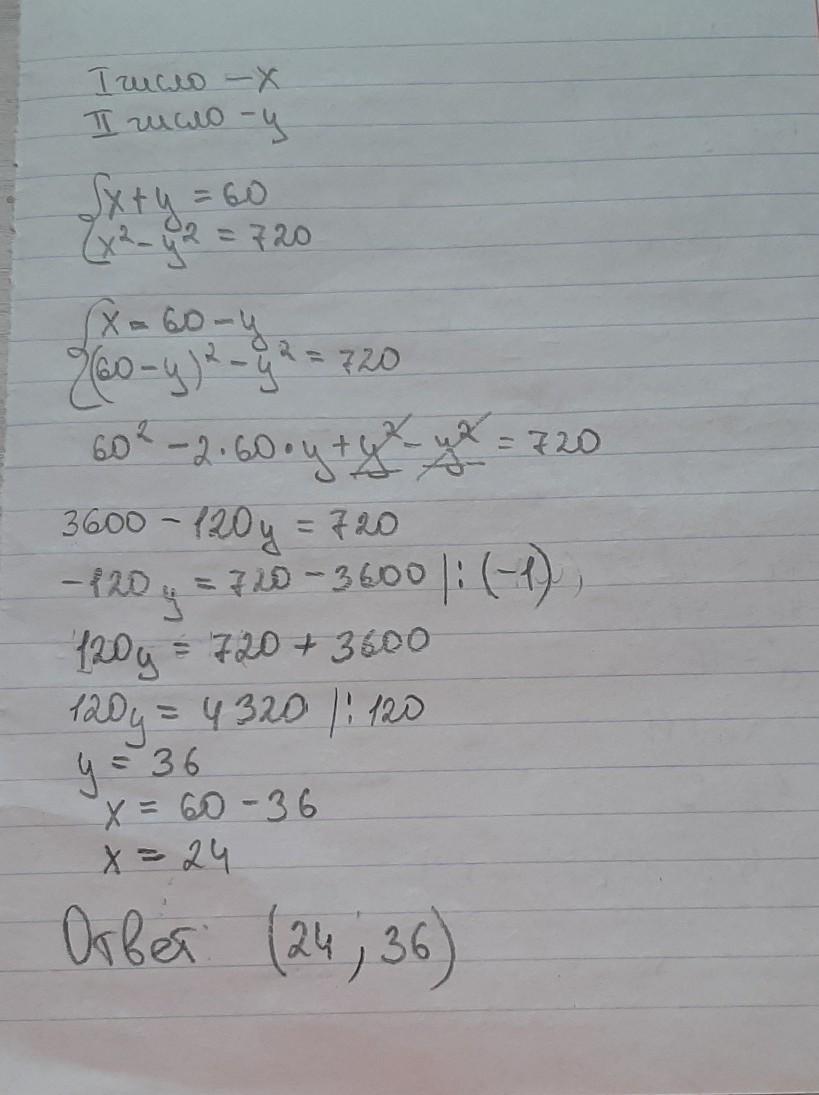 I число – x
II число – y
{x + y = 60
{x² – y² = 720
{x = 60 – y
{(60 – y)² – y² = 720
60² – 2·60·y + y² – y² = 720
3600 – 120y = 720
–120y = 720 – 3600 |: (–1)
120y = 720 + 3600
120y = 4320 |: 120
y = 36
x = 60 – 36
x = 24
Ответ: (24; 36)